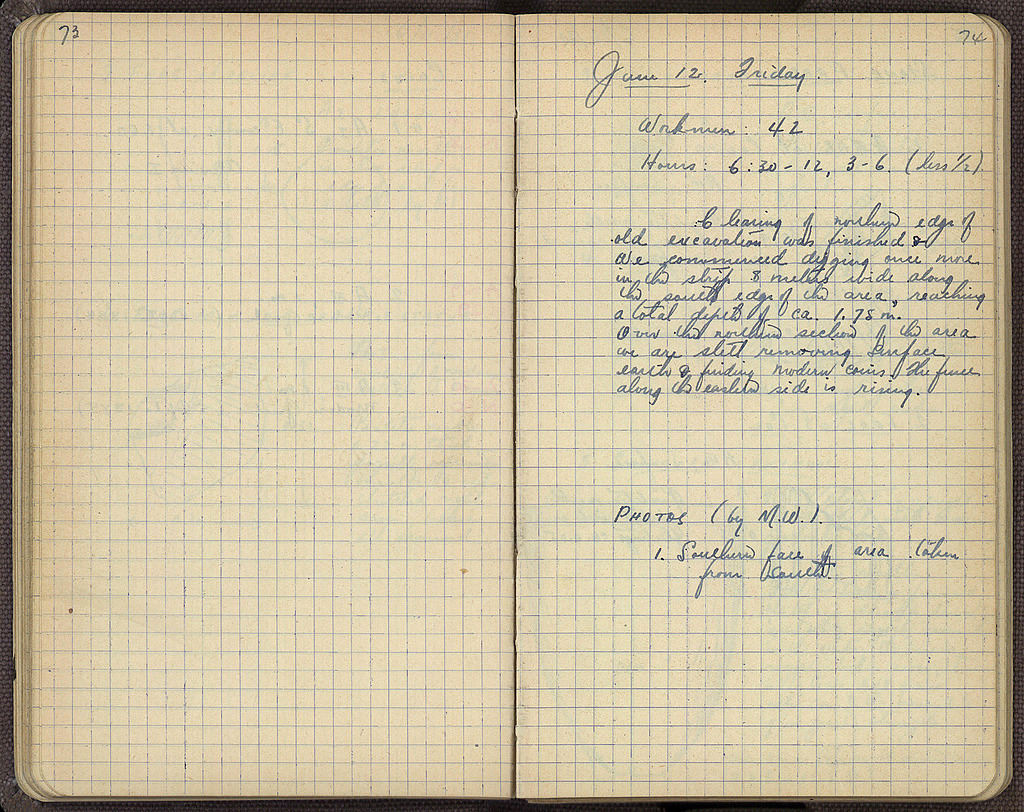 73
74
June 12. Friday.
Workmen: 42
Hours: 6:30 - 12, 3 - 6. (less 1/2)
Clearing of northern edge of
old excavation was finished &
We commenced digging once more
in the strip 8 meters wide along
the south edge of the area, reaching
a total depth of ca. 1.75 m.
Over the northern section of the area
we are still removing surface
earth & finding modern coins. The
along the eastern side is rising.
PHOTOS (by M.W.).
1. Southern face of area taken
from South.